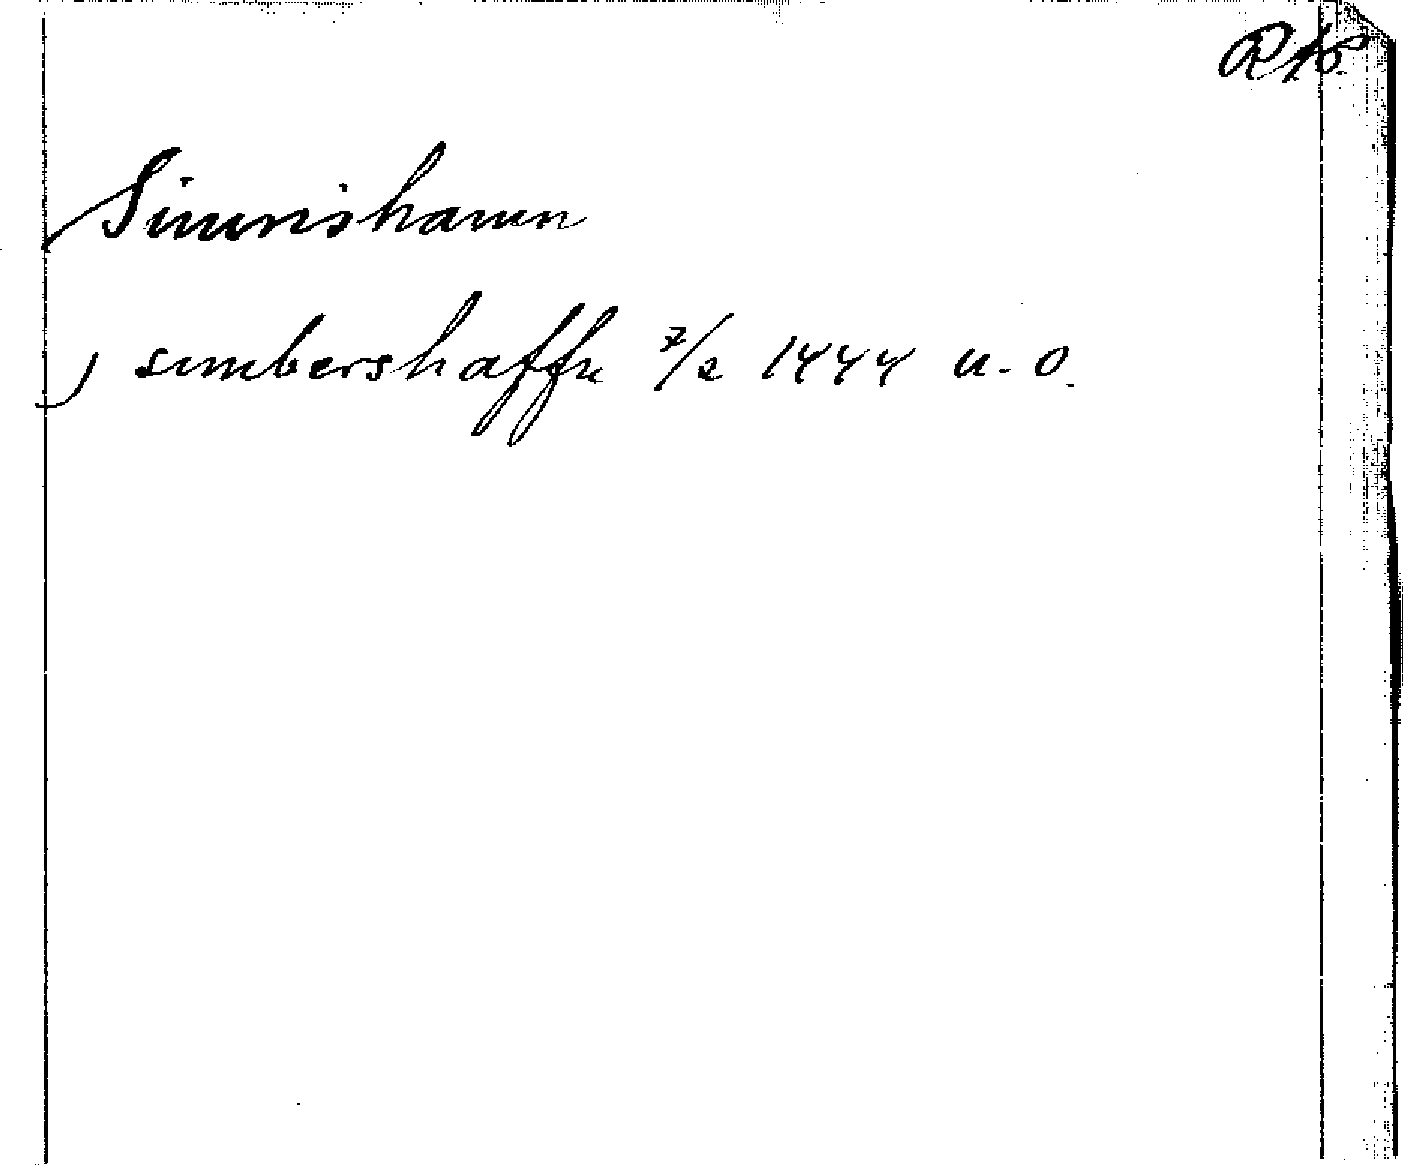 Simrishamn
) sumbershaffn 7/2 1444 u. O.